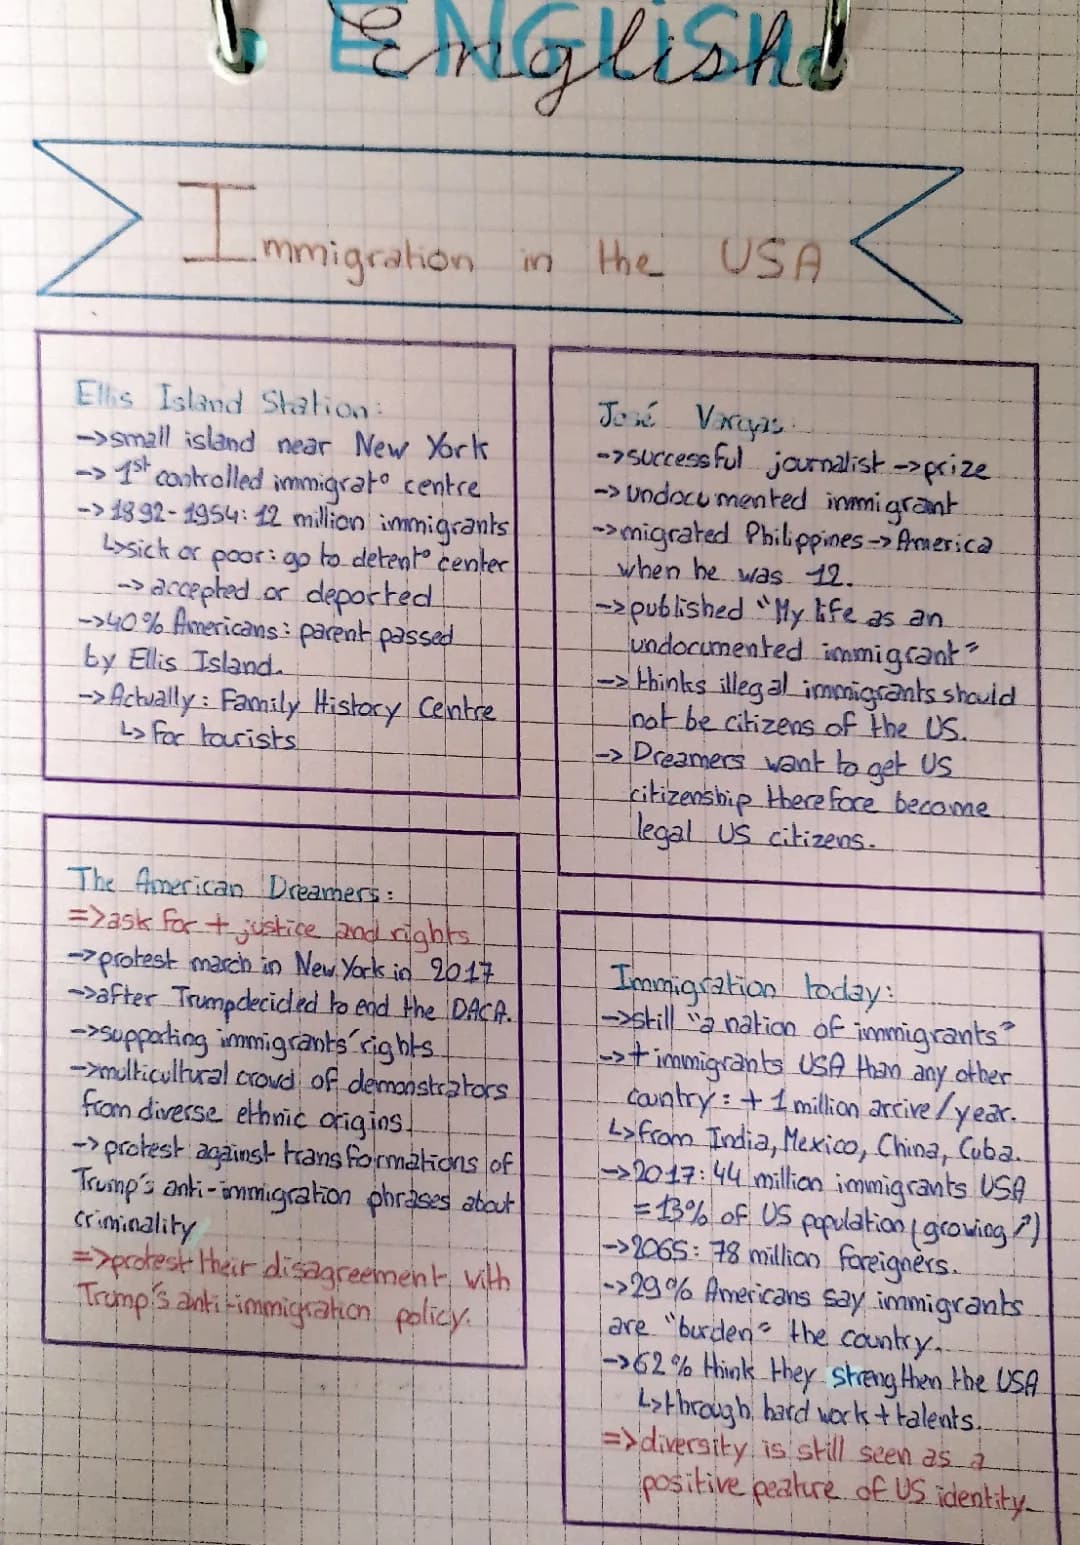 ENGLISH
English
Immigration in the USA
Ellis Island Station:
->small island near New York
-> 1st controlled immigrat° centre
-> 1892-1954: 12 million immigrants
↳sick or poor: go to detent° center
-> accepted or deported
->40% Americans: parent passed
by Ellis Island.
->Actually: Family History Centre
↳ For tourists
José Vargas:
->successful journalist ->prize
->undocumented immigrant
->migrated Philippines -> America
when he was 12.
->published "My life as an
undocumented immigrant"
->thinks illegal immigrants should
not be citizens of the US.
-> Dreamers want to get US
citizenship therefore become
legal US citizens.
The American Dreamers:
=>ask for + justice and rights
->protest march in New York in 2017
->after Trump decided to end the DACA.
->supporting immigrants' rights
->multicultural crowd of demonstrators
from diverse ethnic origins.
->protest against transformations of
Trump's anti-immigration phrases about
criminality
=>protest their disagreement with
Trump's anti-immigration policy.
Immigration today:
->still "a nation of immigrants"
->+ immigrants USA than any other
country: + 1 million arrive/year.
↳from India, Mexico, China, Cuba.
->2017: 44 million immigrants USA
= 13% of US population (growing ↗)
->2065: 78 million foreigners.
->29% Americans say immigrants
are "burden" the country.
->62% think they strengthen the USA
↳through hard work + talents.
=>diversity is still seen as a
positive peature of US identity.